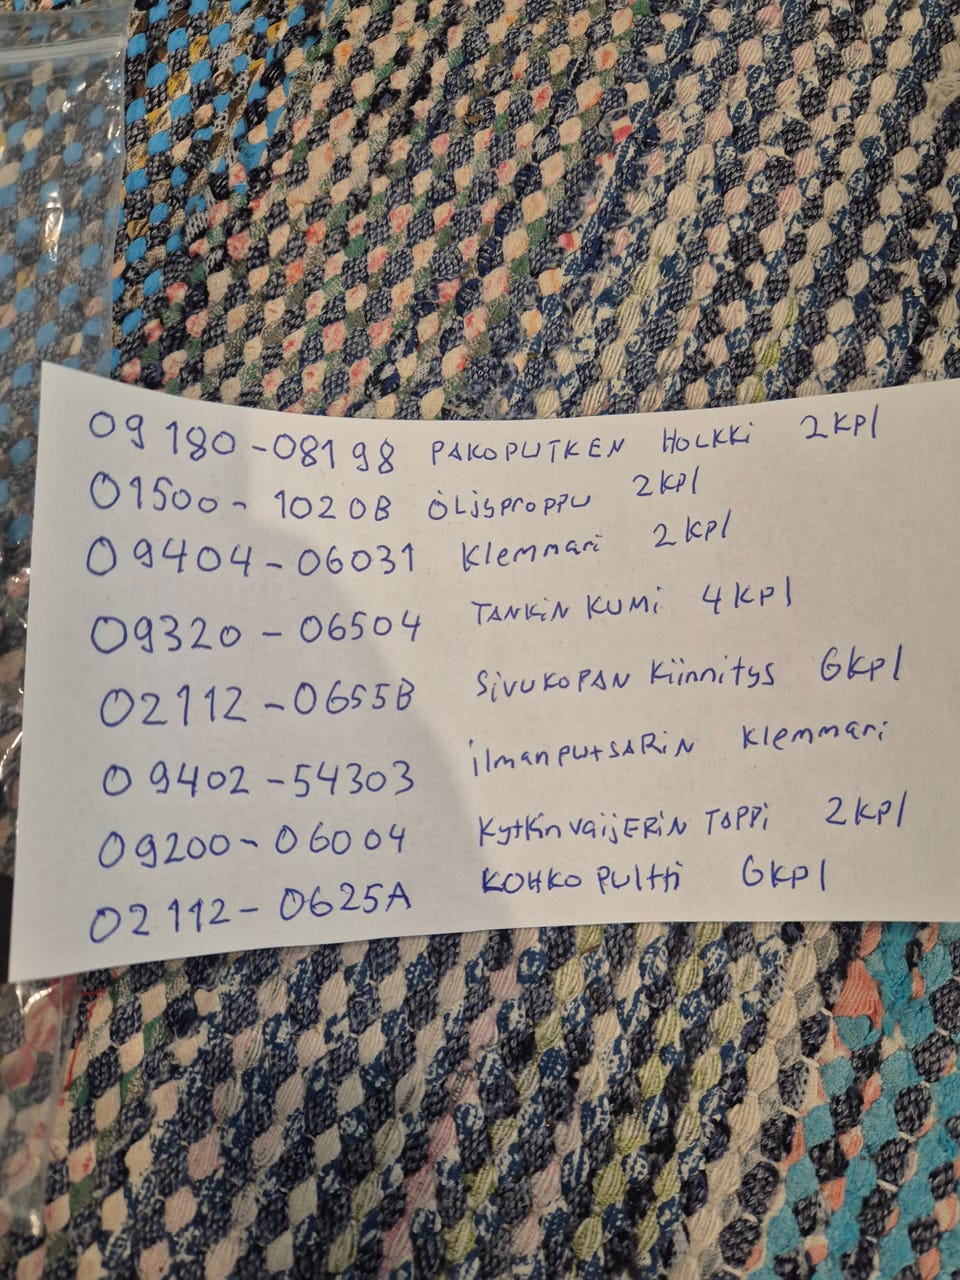 09180-08198 PAKOPUTKEN HOLKKi 2KPl
01500-1020B ÖLJYPROPPU 2KPl
09404-06031 Klemmari 2KPl
09320-06504 TANKiN KUMi 4KPl
02112-0655B SiVUKOPAN Kiinnitys 6KPl
09402-54303 ilmanputsARiN Klemmari
09200-06004 KytkinvaijERiN TOPPi 2KPl
02112-0625A KOHKO PULtti 6KPl